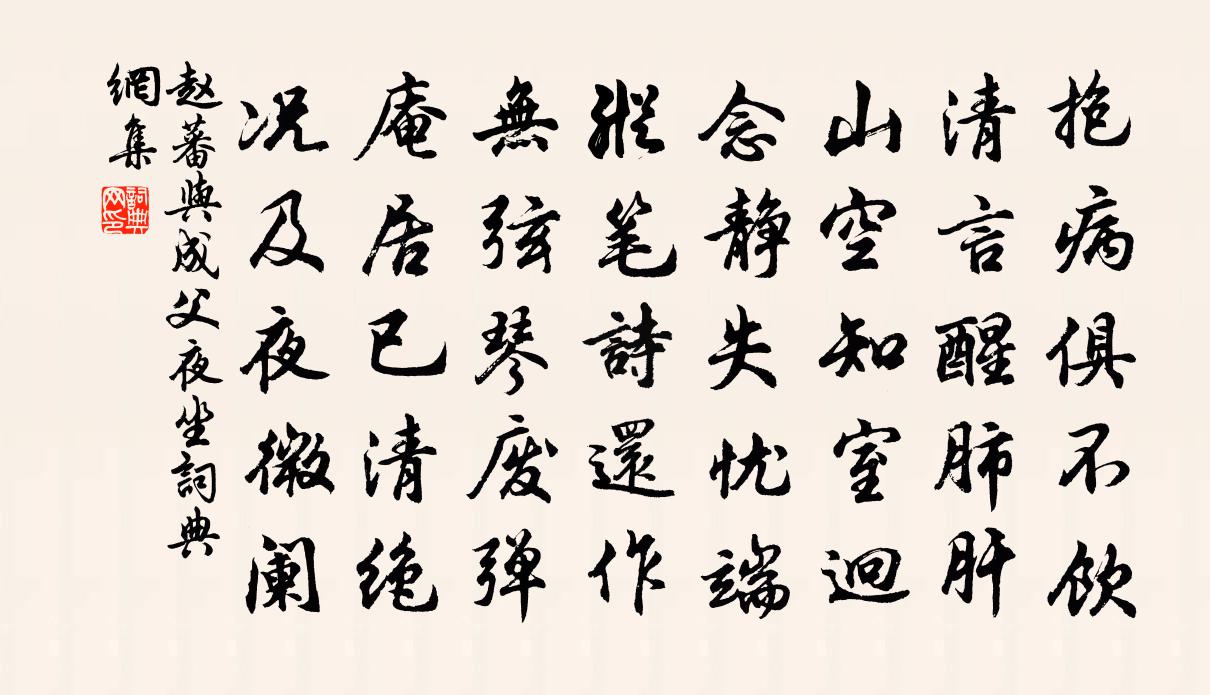 抱病俱不饮
清言醒肺肝
山空知室迥
念静失忧端
縱笔詩還作
無弦琴废弹
庵居已清绝
况及夜微阑
赵蕃與成父夜坐詞典
網集
詞典
网印